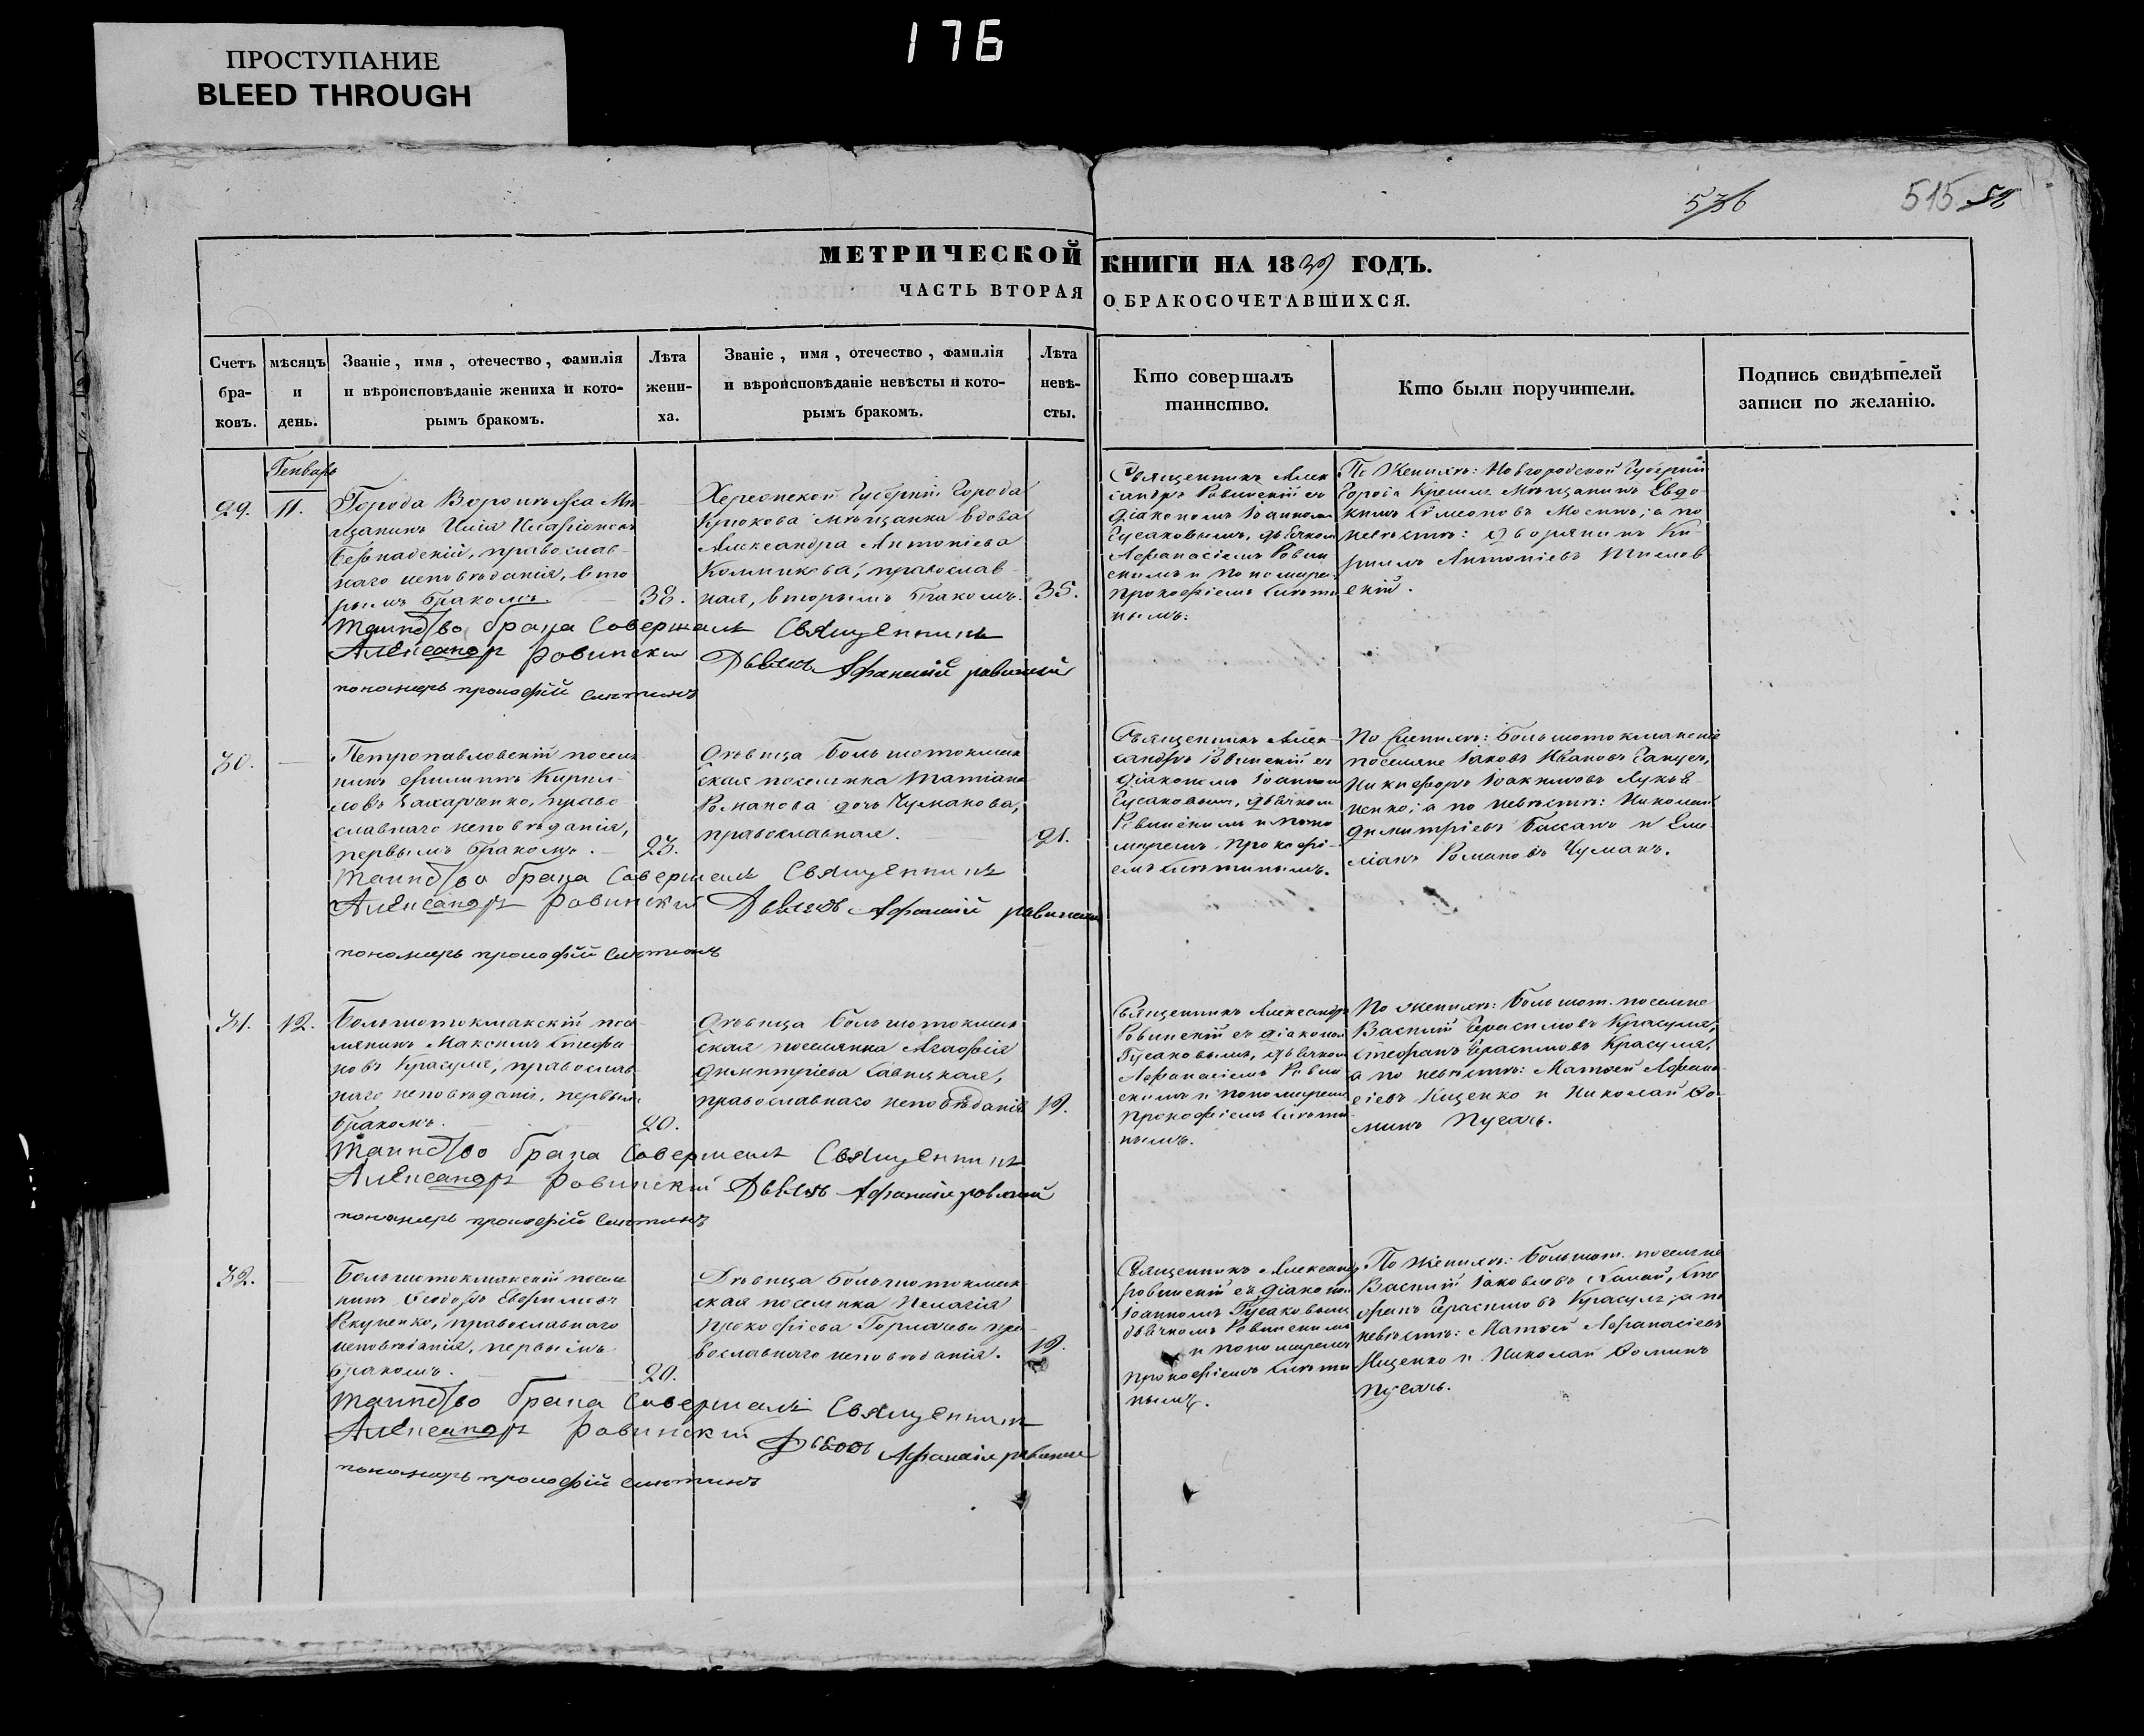 176
ПРОСТУПАНИЕ
BLEED THROUGH
536
515
МЕТРИЧЕСКОЙ КНИГИ НА 1839 ГОДЪ.
ЧАСТЬ ВТОРАЯ О БРАКОСОЧЕТАВШИХСЯ.
Счетъ бра- ковъ.
мѣсяцъ и день.
Званіе, имя, отечество, фамилія
и вѣроисповѣданіе жениха и кото-
рымъ бракомъ.
Лѣта жени- ха.
Званіе, имя, отечество, фамилія
и вѣроисповѣданіе невѣсты и кото-
рымъ бракомъ.
Лѣта невѣ- сты.
Кто совершалъ
таинство.
Кто были поручители.
Подпись свидѣтелей
записи по желанію.
Генварь
29.
11.
Города Воронежа Мѣ-
щанинъ Илія
православ-
наго исповѣданія, вто
рымъ бракомъ.
38.
Херсонской Губерніи Города
Крюкова мѣщанка вдова
Александра Антоніева
православ-
ная, вторымъ бракомъ.
35.
Священникъ Алек
сандръ Ровинскій съ
діакономъ Іоанномъ
Гусаковымъ, дьячкомъ
Афанасіемъ Ровин
скимъ и пономаремъ
Прокофіемъ
нымъ.
По женихѣ: Новгородской Губерніи
Города мѣщанинъ Евдо-
кимъ а по
невѣстѣ: дворянинъ Ки-
риллъ Антоніевъ
скій.
Таинство брака совершалъ Священникъ
Александръ Ровинскій
Дьячокъ Афанасій Ровинскій
пономарь прокофій
30.
Петропавловскій поселя
нинъ Филиппъ Кирил-
ловъ Захарченко, право
славнаго исповѣданія,
первымъ бракомъ.
23.
Дѣвица Большотокмак
ская поселянка Татіана
Романова дочь Чуманова,
православная.
21.
Священникъ Алек-
сандръ Ровинскій съ
діакономъ Іоанномъ
Гусаковымъ, дьячкомъ
Ровинскимъ и поно
маремъ Прокофі-
емъ
По женихѣ: Большотокмакскіе
поселяне Іаковъ Ивановъ
Никифоръ Іоакимовъ Лукья-
ненко; а по невѣстѣ: Николай
Димитріевъ и Еме-
ліанъ Романовъ Чуманъ.
Таинство брака совершалъ Священникъ
Александръ Ровинскій
Дьячокъ Афанасій Ровинскій
пономарь прокофій
31.
12.
Большотокмакскій посе
лянинъ Максимъ Стефа-
новъ Красуля, православ-
наго исповѣданія, первымъ
бракомъ.
20.
Дѣвица Большотокмак
ская поселянка Агафія
Димитріева Савицкая,
православнаго исповѣданія
19.
Священникъ Александръ
Ровинскій съ діакономъ
Гусаковымъ, дьячкомъ
Афанасіемъ Ровин
скимъ и пономаремъ
Прокофіемъ
нымъ.
По женихѣ: Большот. поселяне
Василій Герасимовъ Красуля,
Стефанъ Герасимовъ Красуля,
а по невѣстѣ: Матѳей Афана-
сіевъ Ищенко и Николай Ѳо-
минъ Пугачь.
Таинство брака совершалъ Священникъ
Александръ Ровинскій
Дьячокъ Афанасій Ровинскій
пономарь прокофій
32.
Большотокмакскій поселя
нинъ Ѳеодоръ Евфимовъ
православнаго
исповѣданія, первымъ
бракомъ.
20.
Дѣвица Большотокмак
ская поселянка Пелагія
Прокофіева пра
вославнаго исповѣданія.
19.
Священникъ Александръ
Ровинскій съ діакономъ
Іоанномъ Гусаковымъ
дьячкомъ Ровинскимъ
и пономаремъ
Прокофіемъ
нымъ.
По женихѣ: Большот. поселяне
Василій Іаковлевъ Сте
фанъ Герасимовъ Красуля; а по
невѣстѣ: Матѳей Афанасіевъ
Ищенко и Николай Ѳоминъ
Пугачь.
Таинство брака совершалъ Священникъ
Александръ Ровинскій
Дьячокъ Афанасій Ровинскій
пономарь прокофій